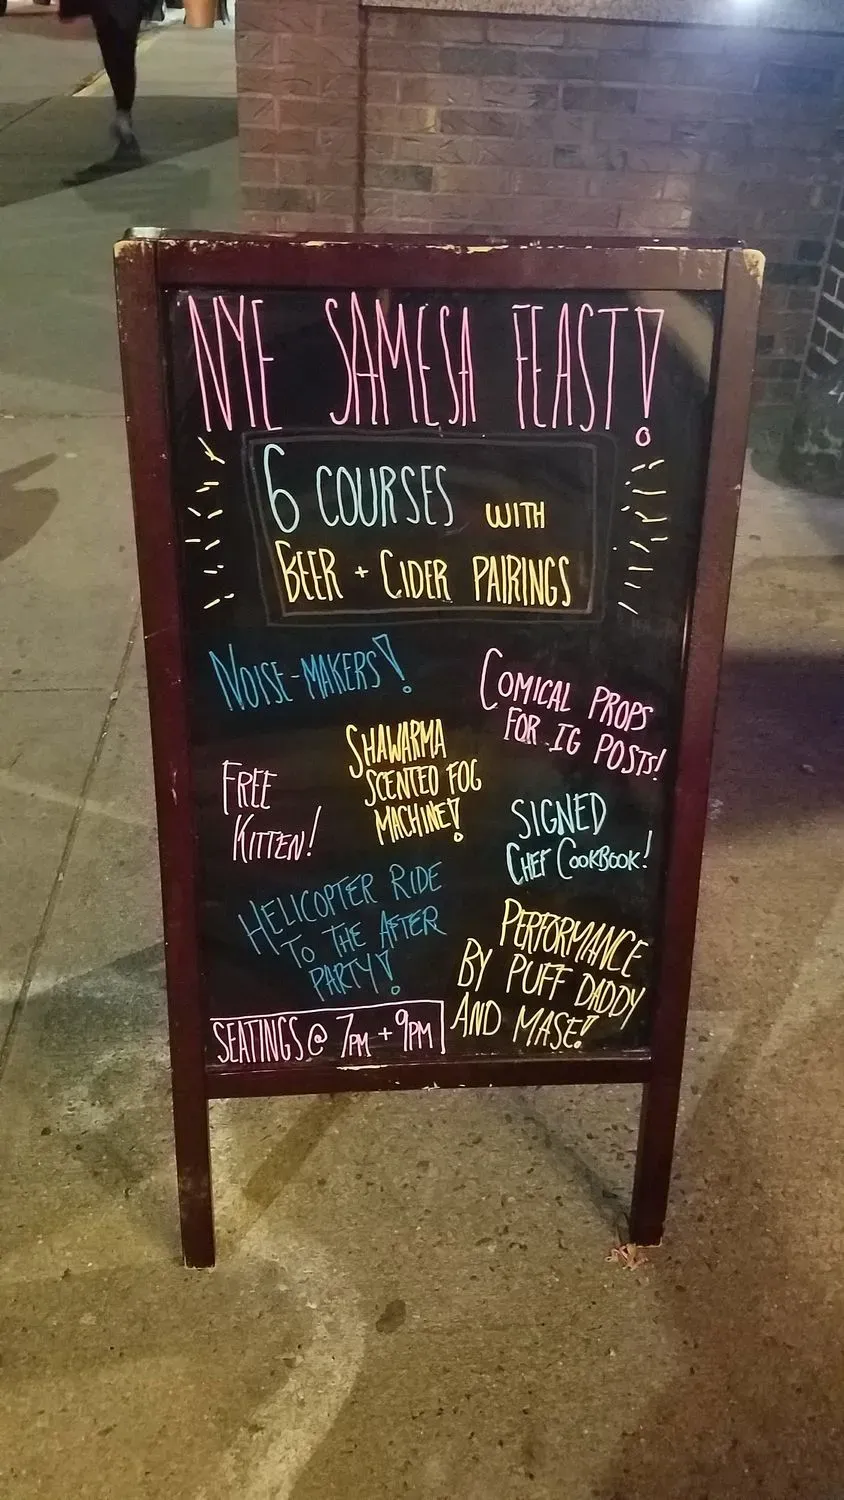 NYE SAMESA FEAST!
6 COURSES WITH
BEER + CIDER PAIRINGS
NOISE-MAKERS!
COMICAL PROPS
FOR IG POSTS!
SHAWARMA
SCENTED FOG
MACHINE!
FREE
KITTEN!
SIGNED
CHEF COOKBOOK!
HELICOPTER RIDE
TO THE AFTER
PARTY!
PERFORMANCE
BY PUFF DADDY
AND MASE!
SEATINGS @ 7PM + 9PM